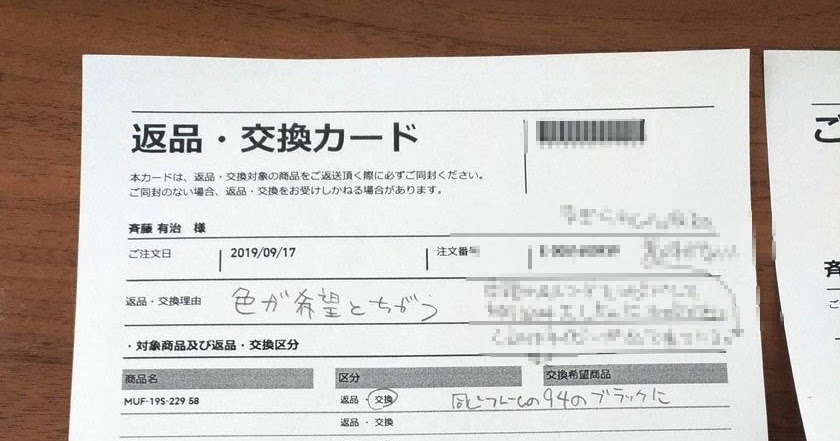 返品・交換カード
本カードは、返品・交換対象の商品をご返送頂く際に必ずご同封ください。
ご同封のない場合、返品・交換をお受けしかねる場合があります。
斉藤 有治 様
ご注文日 2019/09/17 注文番号
返品・交換理由 色が希望とちがう
・対象商品及び返品・交換区分
商品名 区分 交換希望商品
MUF-19S-229 58 返品・交換 同じフレームの94のブラックに
返品・交換
ご
斉
ご